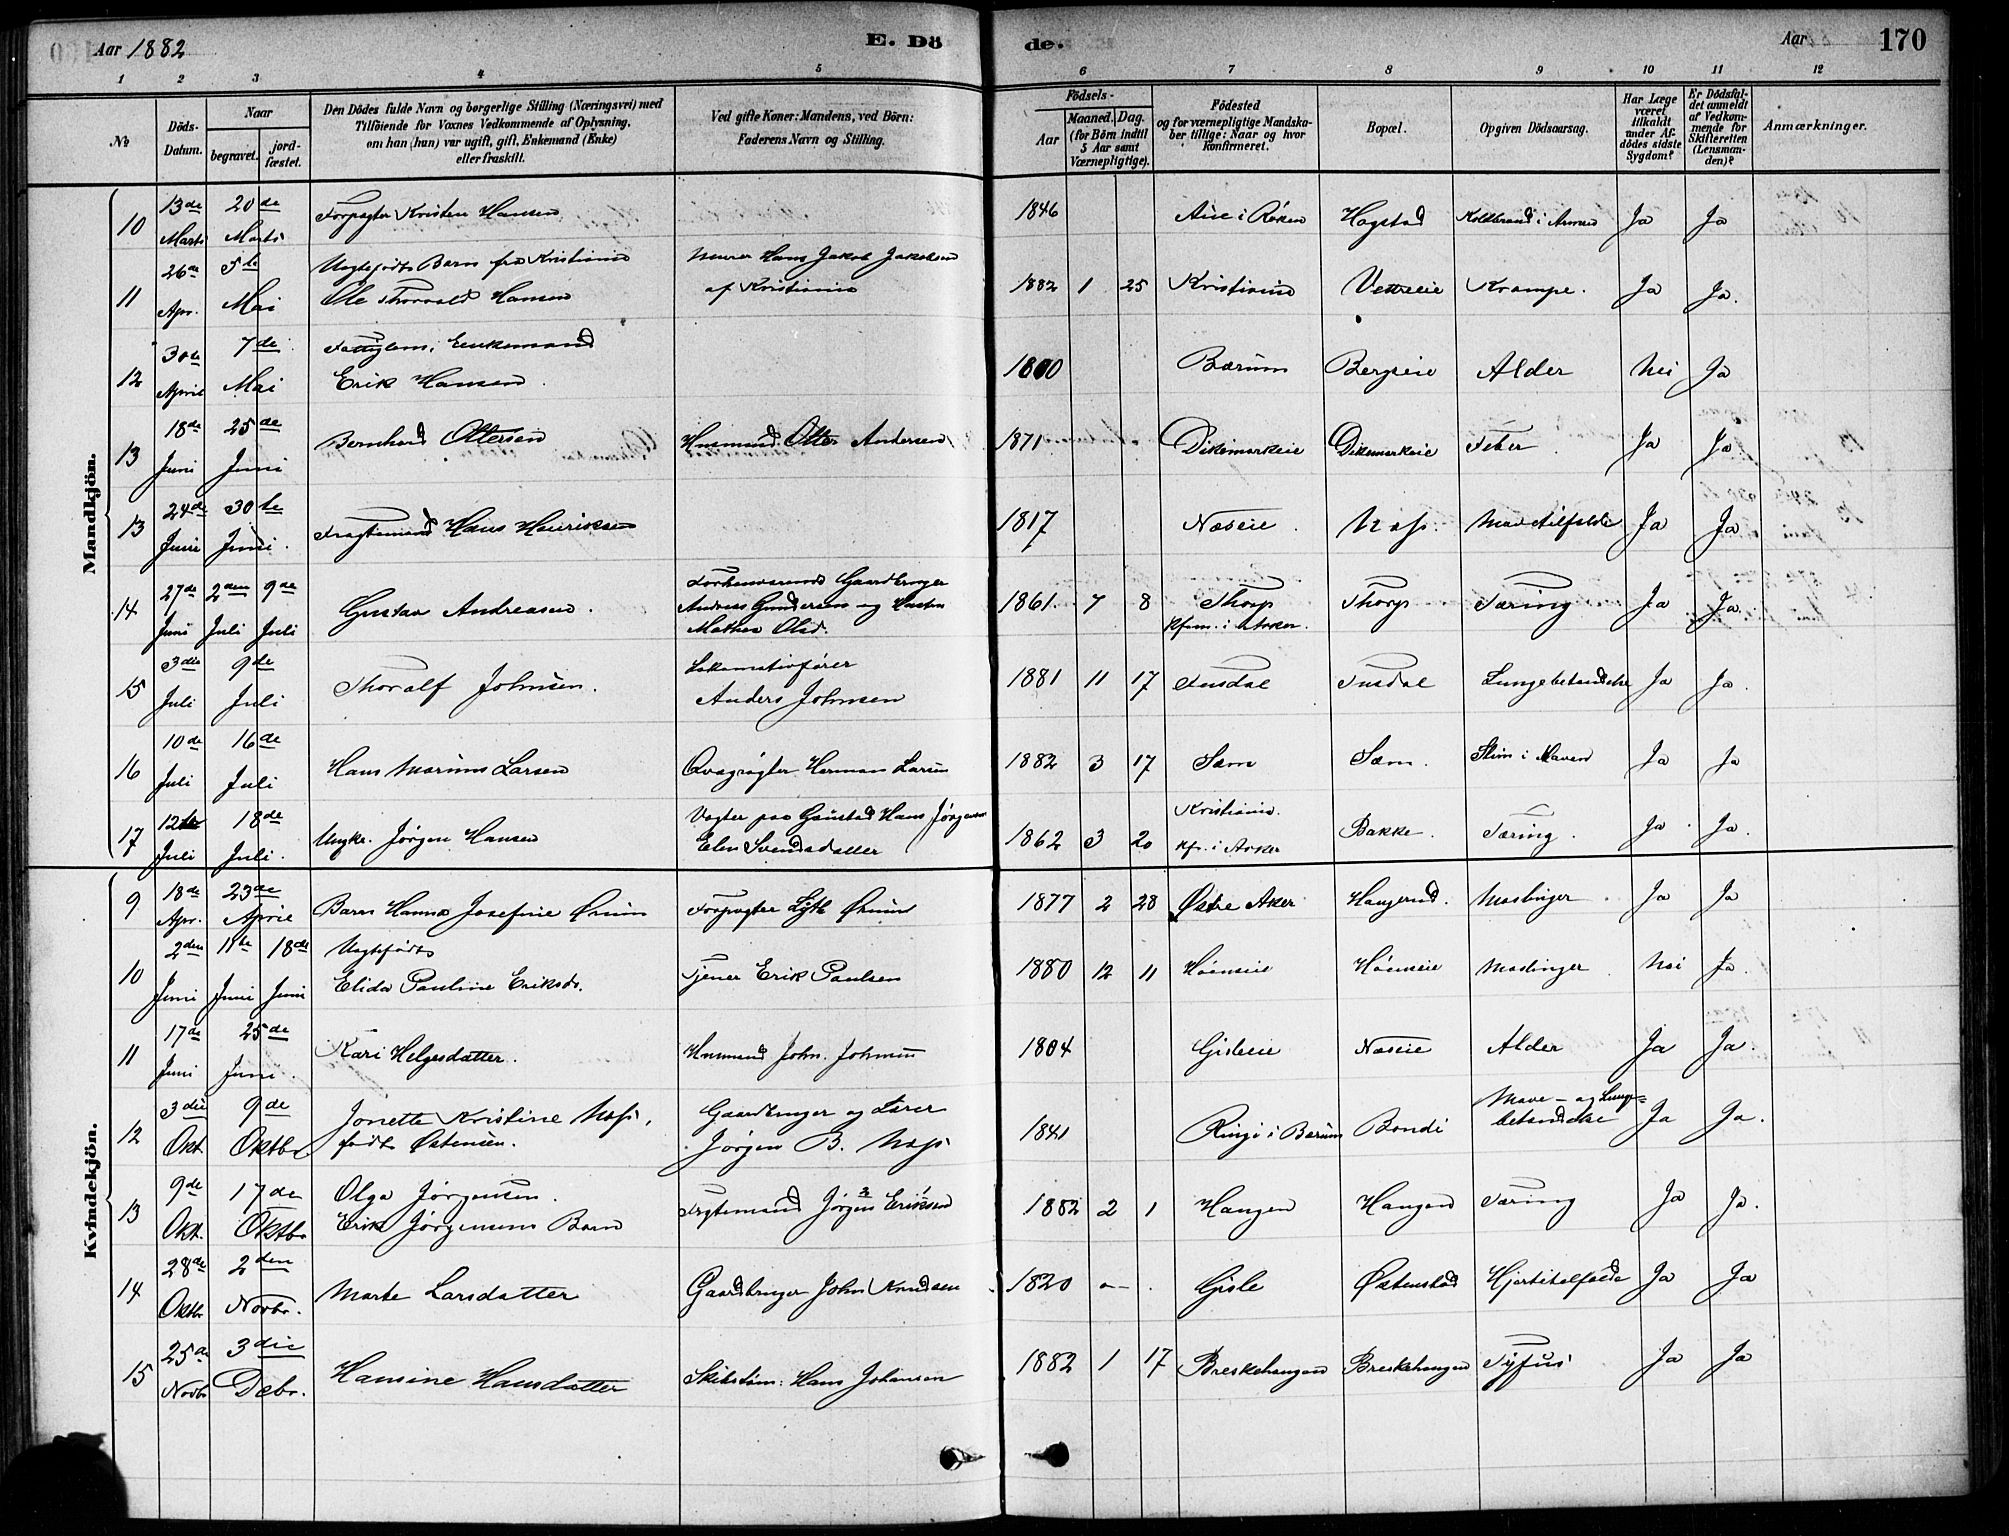 Aar 1882 E. Dö de. Aar 170
1 2 3 4 5 6 7 8 9 10 11 12
№ Döds-Datum. Naar begravet. jord-fæstet. Den Dödes fulde Navn og borgerlige Stilling (Næringsvei) med Tilföiende for Voxnes Vedkommende af Oplysning, om han (hun) var ugift, gift, Enkemand (Enke) eller fraskilt. Ved gifte Koner: Mandens, ved Börn: Faderens Navn og Stilling. Födsels- Aar Maaned. Dag. (for Börn indtil 5 Aar samt Værnepligtige). Födested og for værnepligtige Mandskaber tillige: Naar og hvor konfirmeret. Bopæl. Opgiven Dödsaarsag. Har Læge været tilkaldt under Afdödes sidste Sygdom? Er Dödsfaldet anmeldt af Vedkommende for Skifteretten (Lensmanden)? Anmærkninger.
Mandkjön.
10 13de Marts 20de Marts Forpagter Kristen Hansen 1846 Aue i Røken Hogstad Koldbrand i Armen Ja Ja
11 26de Apr. 5te Mai Uægtefødt Barn fra Kristiania Ole Thorvald Hansen Murer Hans Jakob Jakobsen af Kristiania 1882 1 25 Kristiania Vettreeie Krampe. Ja Ja.
12 30te April 7de Mai Fattiglem, Enkemand Erik Hansen. 1800 Bærum Bergseie Alder Nei Ja
13 18de Juni 25de Juni Bernhard Ottersen Husmand Otter Andersen 1871 Dikemarkeie Dikemarkeie Feber Ja Ja
13 24de Juni 30te Juni. Fragtemand Hans Henriksen 1817 Næseie Næss. Ja Ja
14 27de Juni 2den Juli 9de Juli Gustav Andreasen. Gaardbruger Andreas Gundersen og Hustru Mathea Olsd. 1861 7 8 Thorp Kfom. i Asker. Thorp Tæring Ja Ja
15 3die Juli 9de Juli Thoralf Johnsen. Lokomotivfører Anders Johnsen 1881 11 17 Tusdal Tusdal Lungebetændelse Ja Ja.
16 10de Juli 16de Juli Hans Marius Larsen Qvægrøgter Herman Larsen 1882 3 17 Sæm Sæm. Slim i Maven Ja Ja
17 12te Juli 18de Juli. Ungkr. Jørgen Hansen Vogter paa Gaustad Hans Jørgensen Elen Svendsdatter 1862 3 20 Kristiania. Kf. i Asker Bakke. Tæring. Ja Ja.
Kvindekjön.
9 18de Apr. 23de April Barn Hanna Josefine Ørum Forpagter Lyth Ørum 1877 2 28 Østre Aker Haugerud. Mæslinger Ja Ja
10 2den Juni 11te Juni 18de Juni Uægtefødt Elida Pauline Eriksdr. Tjener Erik Paulsen 1880 12 11 Hønseie Hønseie Mæslinger Nei Ja.
11 17de Juni 25de Juni. Kari Helgesdatter. Husmand John Johnsen 1804 Gisleeie Næseie Alder Ja Ja.
12 3die Okt. 9de Oktbr. Jonette Kristine Næss, født Østensen. Gaardbruger og Lærer Jørgen B. Næss 1841 Ringi i Bærum Bondi Mave- og Lungebetændelse Ja Ja.
13 9de Okt. 17de Oktbr. Olga Jørgensen. Erik Jørgensens Barn Fragtemand Jørgen Eriksen 1882 2 1 Haugen Haugen Tæring Ja Ja.
14 28de Oktbr. 2den Novbr. Marte Larsdatter Gaardbruger John Knudsen 1820 — Gisle Østenstad Ja Ja
15 25de Novbr. 3die Debr. Hansine Hansdatter Skibstøm: Hans Johansen 1882 1 17 Breskehaugen Breskehaugen Tyfus Ja Ja